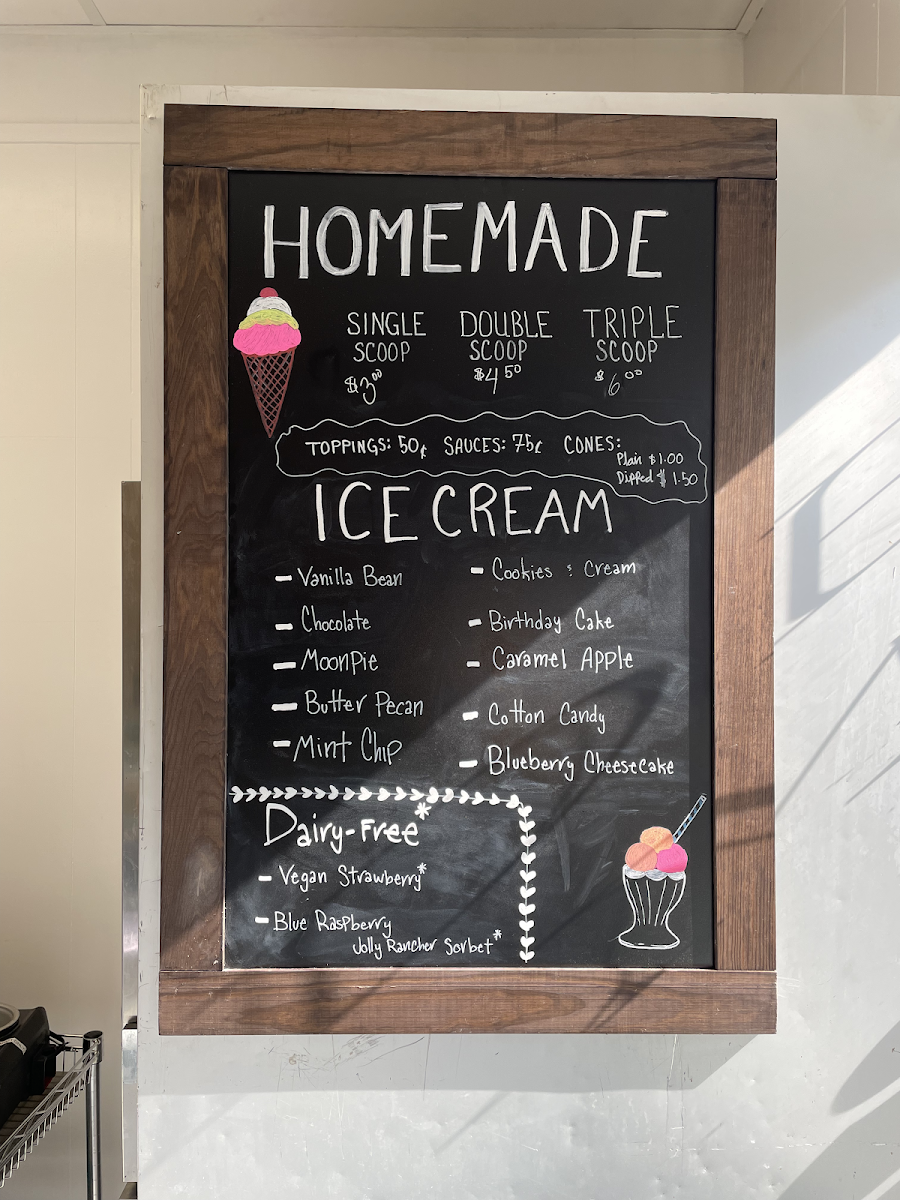 HOMEMADE
SINGLE SCOOP $3.00
DOUBLE SCOOP $4.50
TRIPLE SCOOP $6.00
TOPPINGS: 50¢ SAUCES: 75¢ CONES:
Plain $1.00
Dipped $1.50
ICE CREAM
- Vanilla Bean
- Chocolate
- MoonPie
- Butter Pecan
- Mint Chip
- Cookies & Cream
- Birthday Cake
- Caramel Apple
- Cotton Candy
- Blueberry Cheesecake
Dairy-Free*
- Vegan Strawberry*
- Blue Raspberry
Jolly Rancher Sorbet*